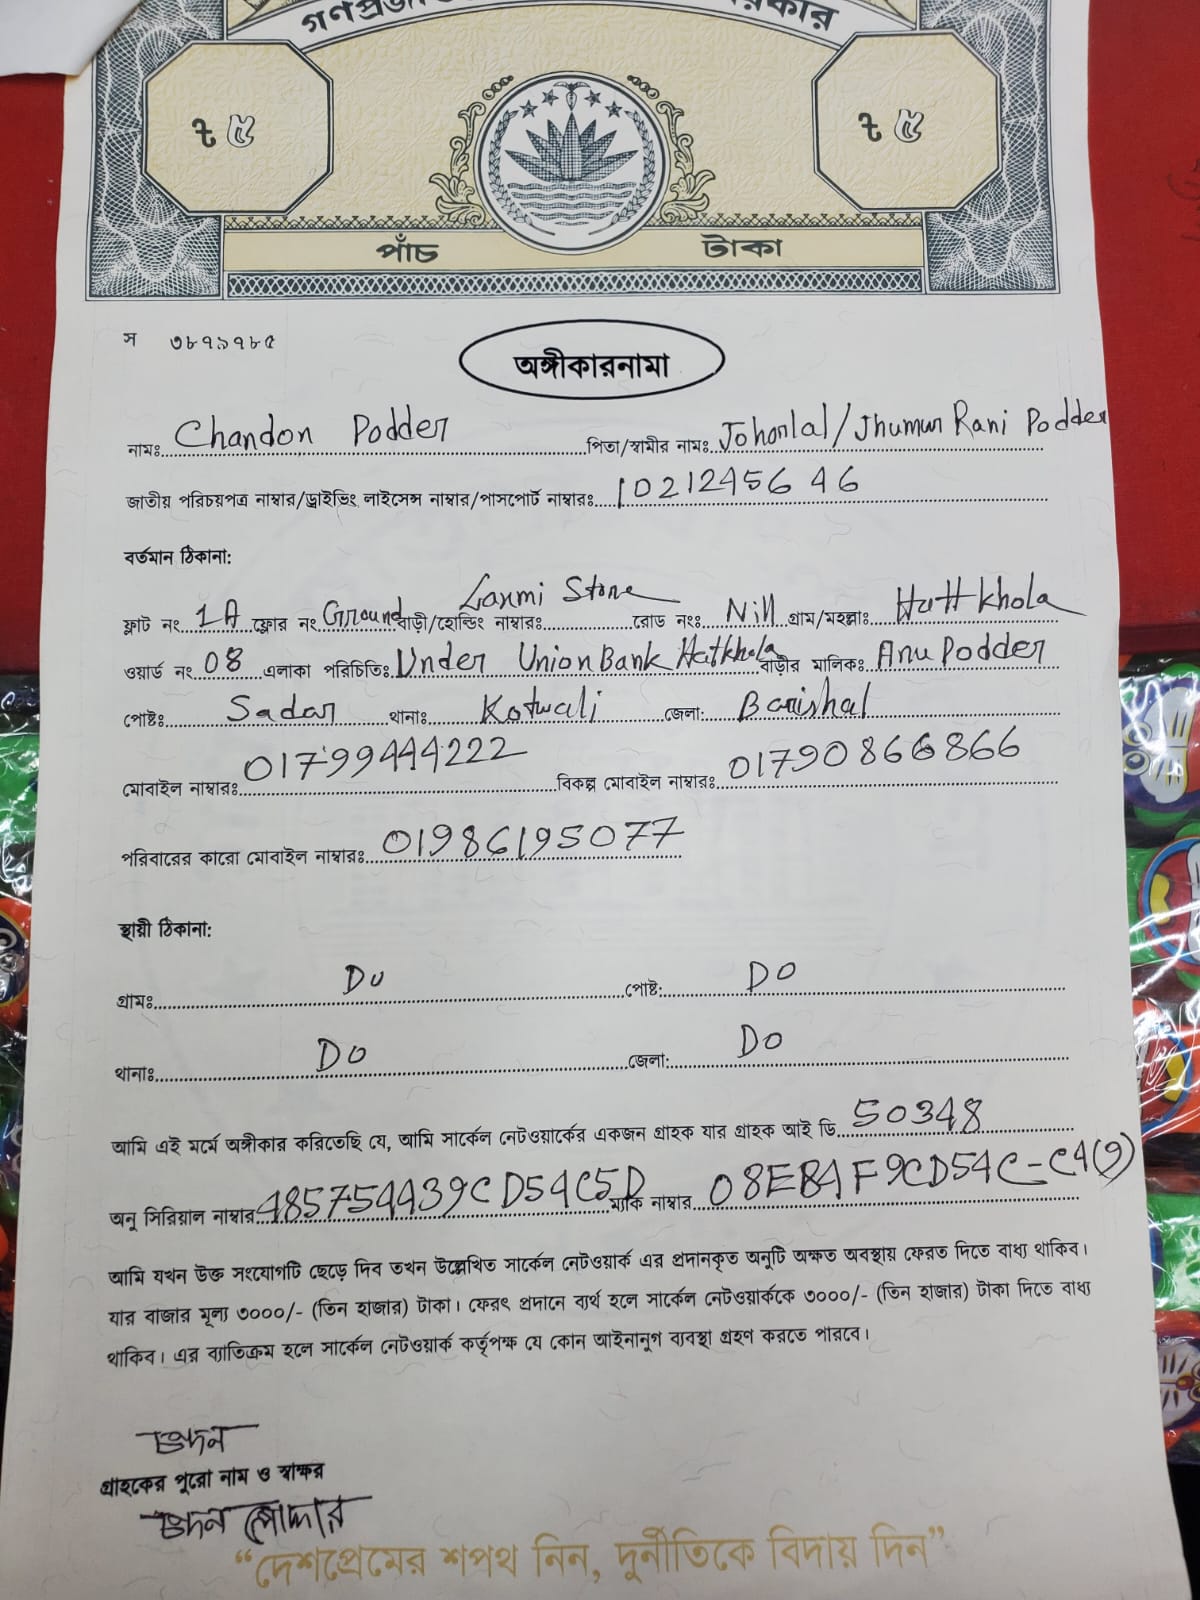 ৳ ৫
৳ ৫
পাঁচ টাকা
স ৩৮৭৯৭৮৫
অঙ্গীকারনামা
নামঃ Chandon Podder পিতা/স্বামীর নামঃ Johorlal/Jhumur Rani Podder
জাতীয় পরিচয়পত্র নাম্বার/ড্রাইভিং লাইসেন্স নাম্বার/পাসপোর্ট নাম্বারঃ 1021245646
বর্তমান ঠিকানা:
ফ্লাট নং 1A ফ্লোর নং Ground বাড়ী/হোল্ডিং নাম্বারঃ Laxmi Store রোড নংঃ Nill গ্রাম/মহল্লাঃ Hattkhola
ওয়ার্ড নং 08 এলাকা পরিচিতিঃ Under Union Bank Hatkhola বাড়ীর মালিকঃ Anu Podder
পোষ্টঃ Sadar থানাঃ Kotwali জেলা: Barishal
মোবাইল নাম্বারঃ 01799444222 বিকল্প মোবাইল নাম্বারঃ 01790866866
পরিবারের কারো মোবাইল নাম্বারঃ 01986195077
স্থায়ী ঠিকানা:
গ্রামঃ Do পোষ্ট: DO
থানাঃ Do জেলা: Do
আমি এই মর্মে অঙ্গীকার করিতেছি যে, আমি সার্কেল নেটওয়ার্কের একজন গ্রাহক যার গ্রাহক আই ডি 50348
অনু সিরিয়াল নাম্বার 485754439CD54C5D ম্যাক নাম্বার
আমি যখন উক্ত সংযোগটি ছেড়ে দিব তখন উল্লেখিত সার্কেল নেটওয়ার্ক এর প্রদানকৃত অনুটি অক্ষত অবস্থায় ফেরত দিতে বাধ্য থাকিব।
যার বাজার মূল্য ৩০০০/- (তিন হাজার) টাকা। ফেরৎ প্রদানে ব্যর্থ হলে সার্কেল নেটওয়ার্ককে ৩০০০/- (তিন হাজার) টাকা দিতে বাধ্য
থাকিব। এর ব্যাতিক্রম হলে সার্কেল নেটওয়ার্ক কর্তৃপক্ষ যে কোন আইনানুগ ব্যবস্থা গ্রহণ করতে পারবে।
চন্দন
গ্রাহকের পুরো নাম ও স্বাক্ষর
চন্দন পোদ্দার
“দেশপ্রেমের শপথ নিন, দুর্নীতিকে বিদায় দিন”